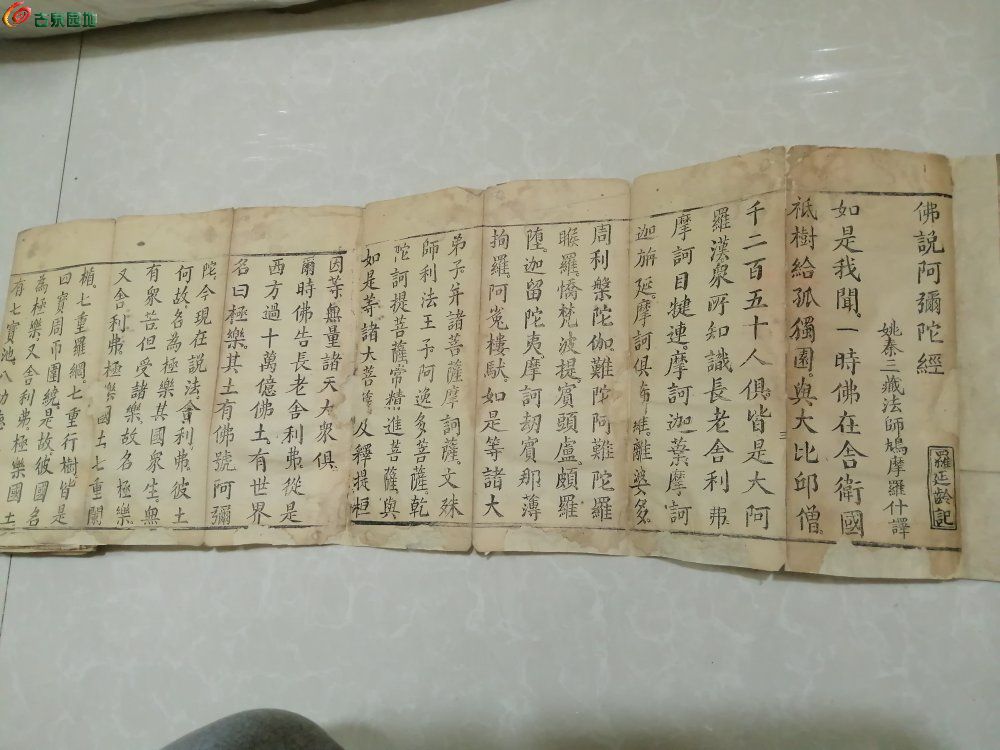 古泉园地
佛說阿彌陀經
姚秦三藏法師鳩摩羅什譯
羅延齡記
如是我聞。一時佛在舍衛國
祇樹給孤獨園。與大比邱僧。
千二百五十人俱。皆是大阿
羅漢。衆所知識。長老舍利弗。
摩訶目犍連。摩訶迦葉。摩訶
迦旃延。摩訶俱希維。離婆多。
周利槃陀伽。難陀。阿難陀。羅
睺羅。憍梵波提。賓頭盧。頗羅
堕。迦留陀夷。摩訶劫賓那。薄
拘羅。阿㝹樓馱。如是等諸大
弟子。并諸菩薩摩訶薩。文殊
師利法王子。阿逸多菩薩。乾
陀訶提菩薩。常精進菩薩。與
如是等諸大菩薩。及釋提桓
因等。無量諸天大衆俱。
爾時佛告長老舍利弗。從是
西方過十萬億佛土。有世界
名曰極樂。其土有佛號阿彌
陀。今現在説法。舍利弗。彼土
何故名為極樂。其國衆生。無
有衆苦。但受諸樂。故名極樂。
又舍利弗。極樂國土。七重闌
楯。七重羅網。七重行樹。皆是
四寶周帀圍繞。是故彼國名
為極樂。又舍利弗。極樂國土
有七寶池。八功德